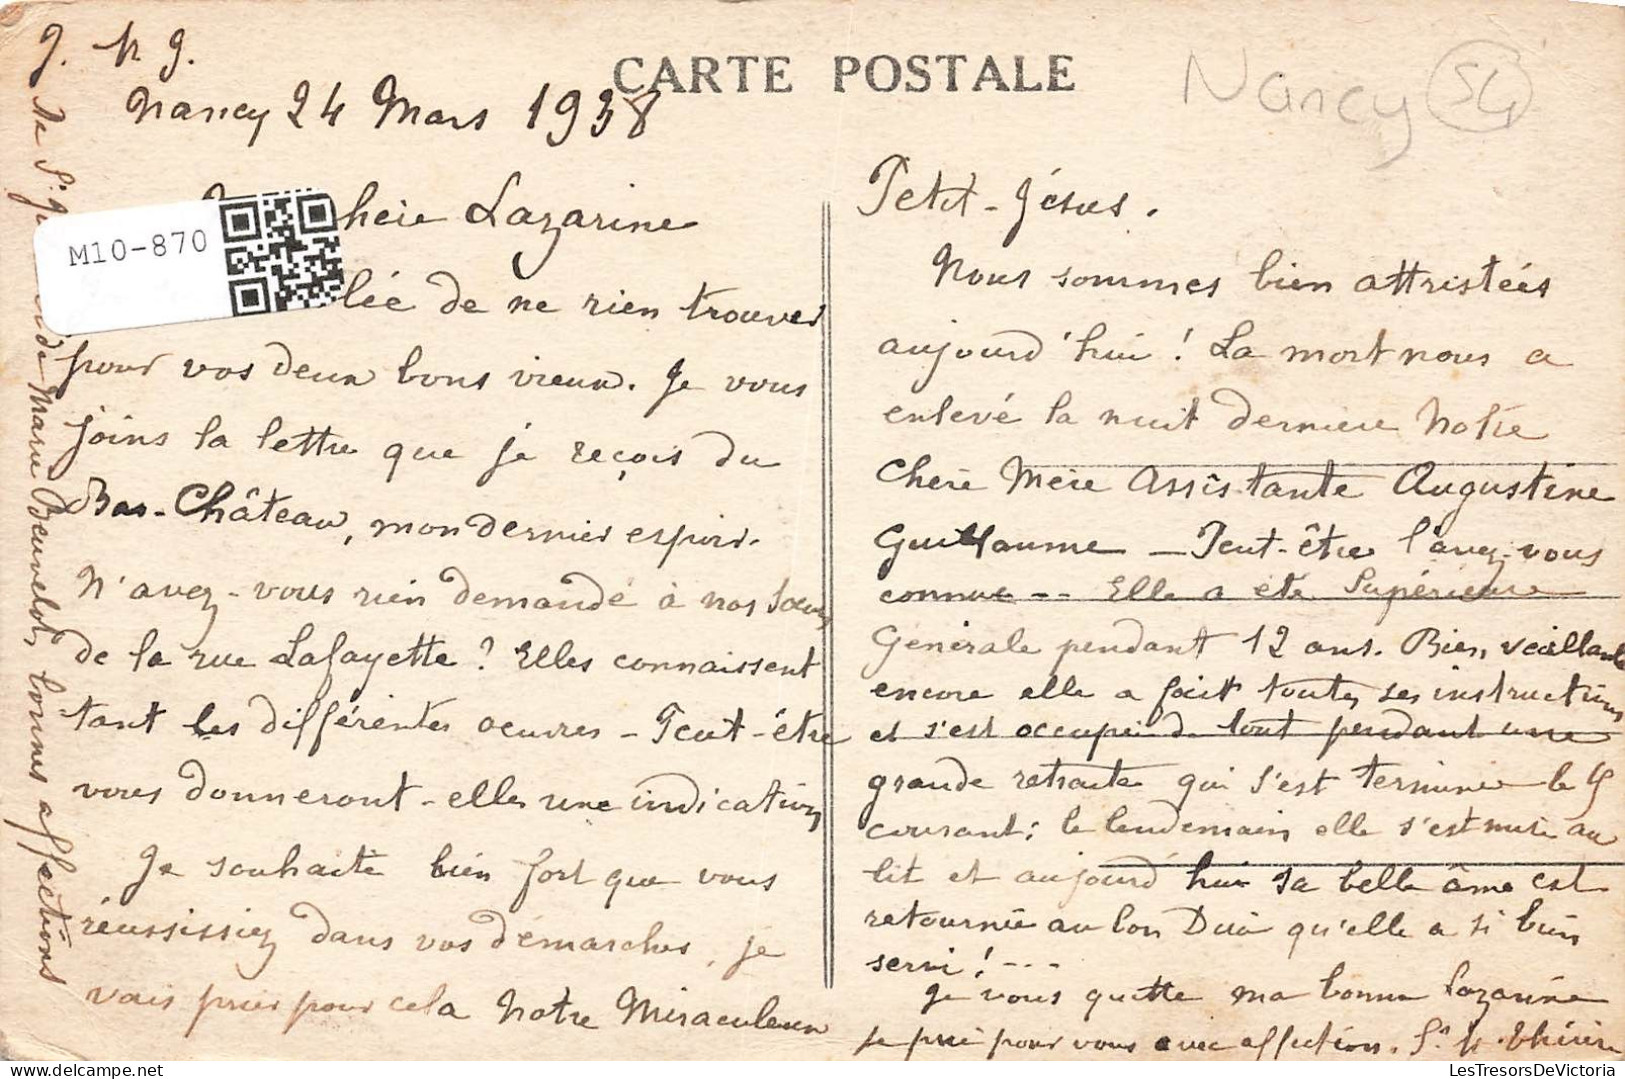 J. M J.
CARTE POSTALE
Nancy 54
Nancy 24 Mars 1938
M10-870
chère Lazarine
lée de ne rien trouver
pour vos deux bons vieux. Je vous
joins la lettre que je reçois du
Bas-Château, mon dernier espoir.
N'avez-vous rien demandé à nos Soeurs
de la rue Lafayette ? Elles connaissent
tant les différentes oeuvres - Peut-être
vous donneront-elles une indication
Je souhaite bien fort que vous
réussissiez dans vos démarches, je
vais prier pour cela Notre Miraculeux
Petit-Jésus.
Nous sommes bien attristées
aujourd'hui ! La mort nous a
enlevé la nuit dernière Notre
Chère Mère Assistante Augustine
Guillaume - Peut-être l'avez-vous
connue -- Elle a été Supérieure
Générale pendant 12 ans. Bien veillante
encore elle a fait toutes ses instructions
et s'est occupée de tout pendant une
grande retraite qui s'est terminée le 9
courant ; le lendemain elle s'est mise au
lit et aujourd'hui sa belle âme est
retournée au bon Dieu qu'elle a si bien
servi ! ---
Je vous quitte ma bonne Lazarine
je prie pour vous avec affection. Sr M. Thérèse
de Marie Beuvelot, bonnes affections
LesTresorsDeVictoria